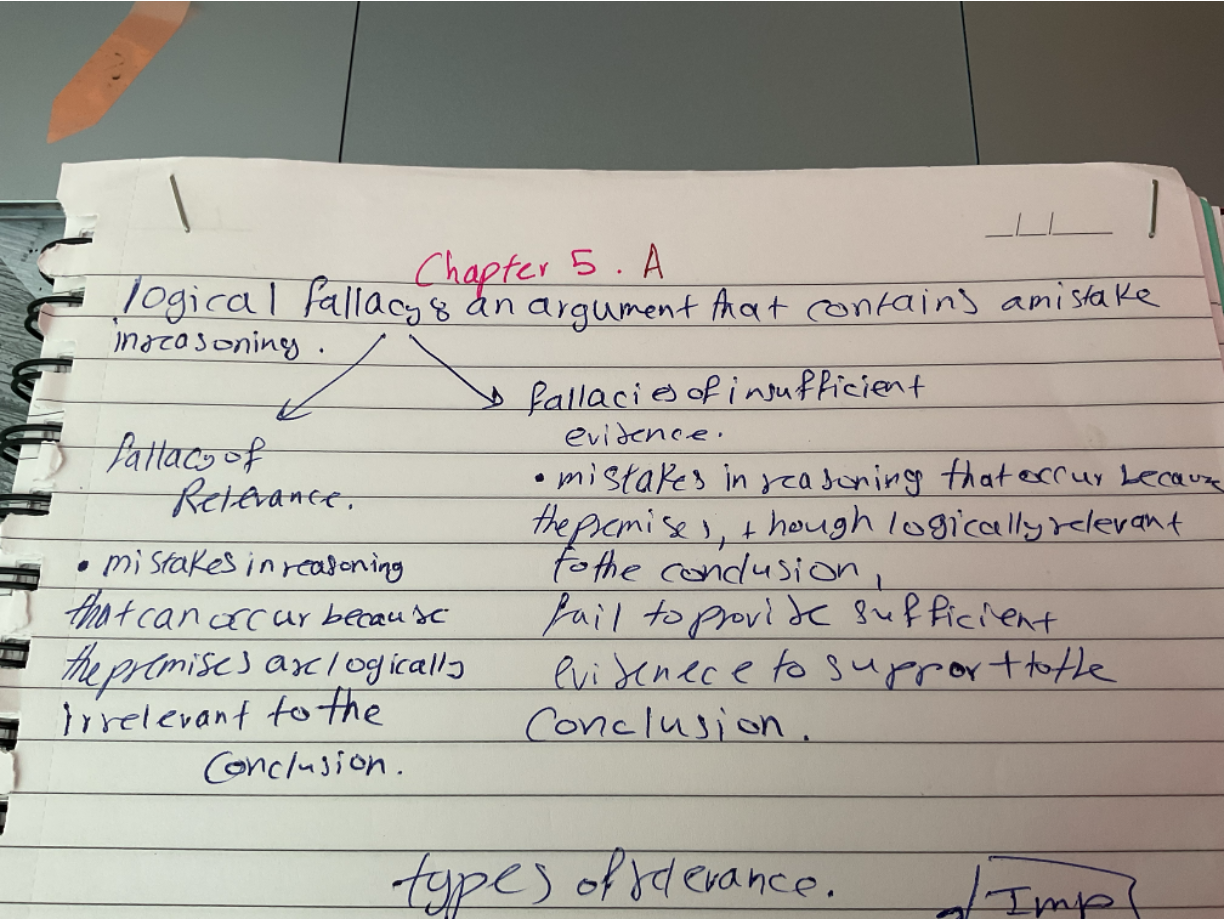 Chapter 5 . A
logical fallacy : an argument that contains a mistake
in reasoning .
fallacies of insufficient
evidence.
fallacy of
Relevance.
• mistakes in reasoning
that can occur because
the premises are logically
Irrelevant to the
Conclusion.
• mistakes in reasoning that occur because
the premises, though logically relevant
to the conclusion,
fail to provide sufficient
evidenece to support to the
Conclusion.
types of relevance.
Imp